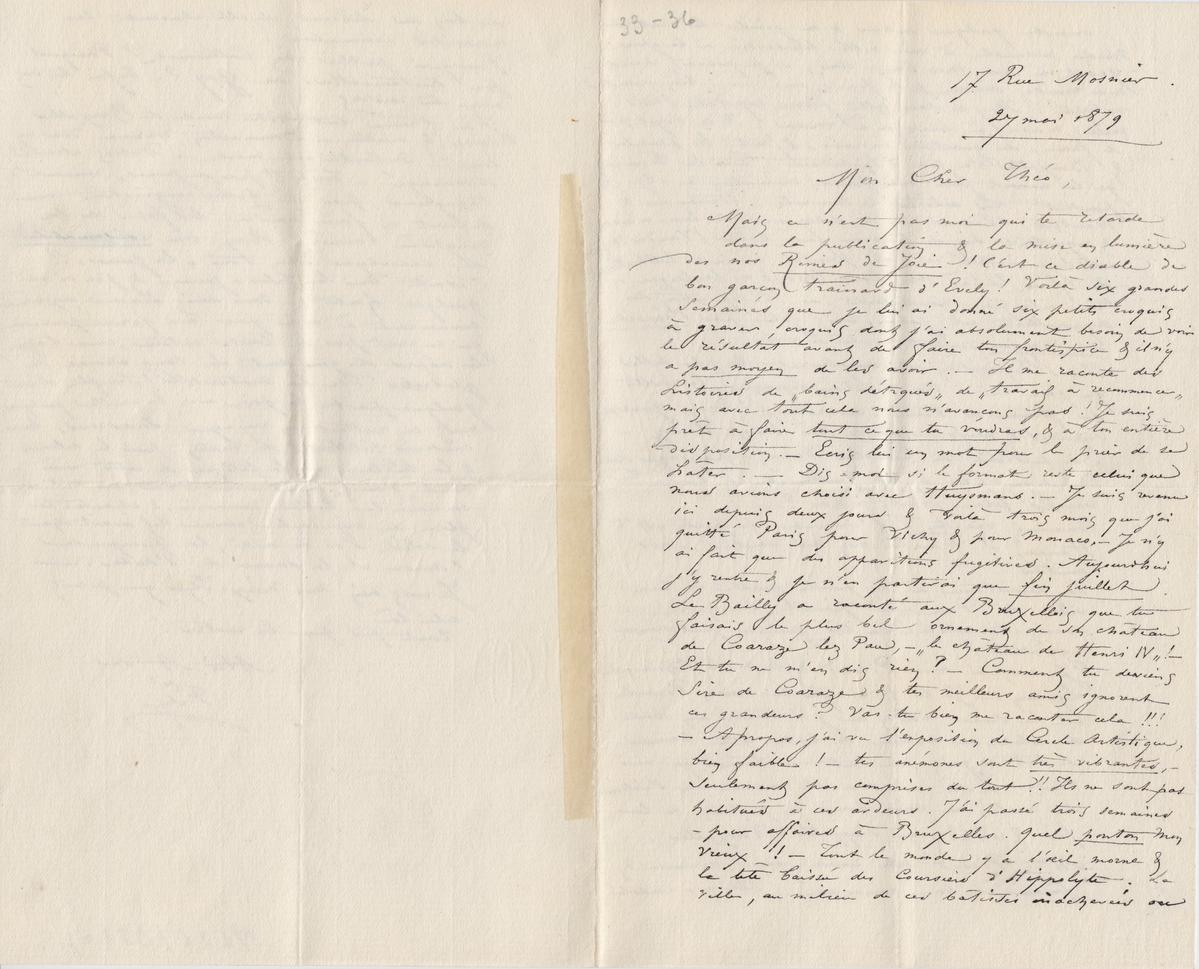 33-36
17 Rue Mosnier.
27 mai 1879
Mon Cher Théo,
Mais ce n'est pas moi qui te retarde
dans la publication & la mise en lumière
des nos Rimes de Joie ! C'est ce diable de
bon garçon traînard d'Evely ! Voilà six grandes
semaines que je lui ai donné six petits croquis
à graver, croquis dont j'ai absolument besoin de voir
le résultat avant de faire ton frontispice & il n'y
a pas moyen de les avoir. — Il me raconte des
histoires de „bains détraqués„ de „travail à recommencer„
mais avec tout cela nous n'avançons pas ! Je suis
prêt à faire tout ce que tu voudras, & à ton entière
disposition. — Ecris lui un mot pour le prier de se
hâter. — Dis-moi si le format reste celui que
nous avions choisi avec Huysmans. — Je suis revenu
ici depuis deux jours & voilà trois mois que j'ai
quitté Paris pour Vichy & pour Monaco, — Je n'y
ai fait que des apparitions fugitives. Aujourd'hui
j'y rentre & je n'en partirai que fin juillet.
Le Bailly a raconté aux Bruxellois que tu
faisais le plus bel ornement de son château
de Coaraze lez Pau, — „le château de Henri IV„ ! —
Et tu ne m'en dis rien ? — Comment tu deviens
Sire de Coaraze & tes meilleurs amis ignorent
ces grandeurs ? Vas-tu bien me raconter cela !!!
— Apropos, j'ai vu l'exposition du Cercle Artistique,
bien faible ! — tes anémones sont très vibrantes, —
seulement pas comprises du tout !! Ils ne sont pas
habitués à ces ardeurs. J'ai passé trois semaines
— pour affaires à Bruxelles. Quel ponton mon
vieux !! — Tout le monde y a l'œil morne &
la tête baissée des Coursiers d'Hippolyte. La
ville, au milieu de ces bâtisses inachevées ou